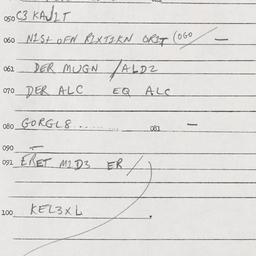 050 C3 KAJIT
060 NIST OFN RIXTIKN ORIT (060 —
061 DER MUGN /ALD2
070 DER ALC EQ ALC
080 GORGL8 ........ 081 —
090 —
091 ERET M1D3 ER /
100 KEL3XL .